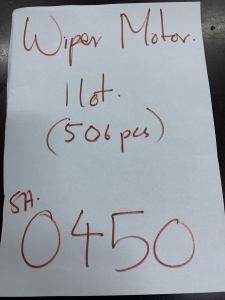 Wiper Motor.
1 lot.
(506 pcs)
SA.
0450